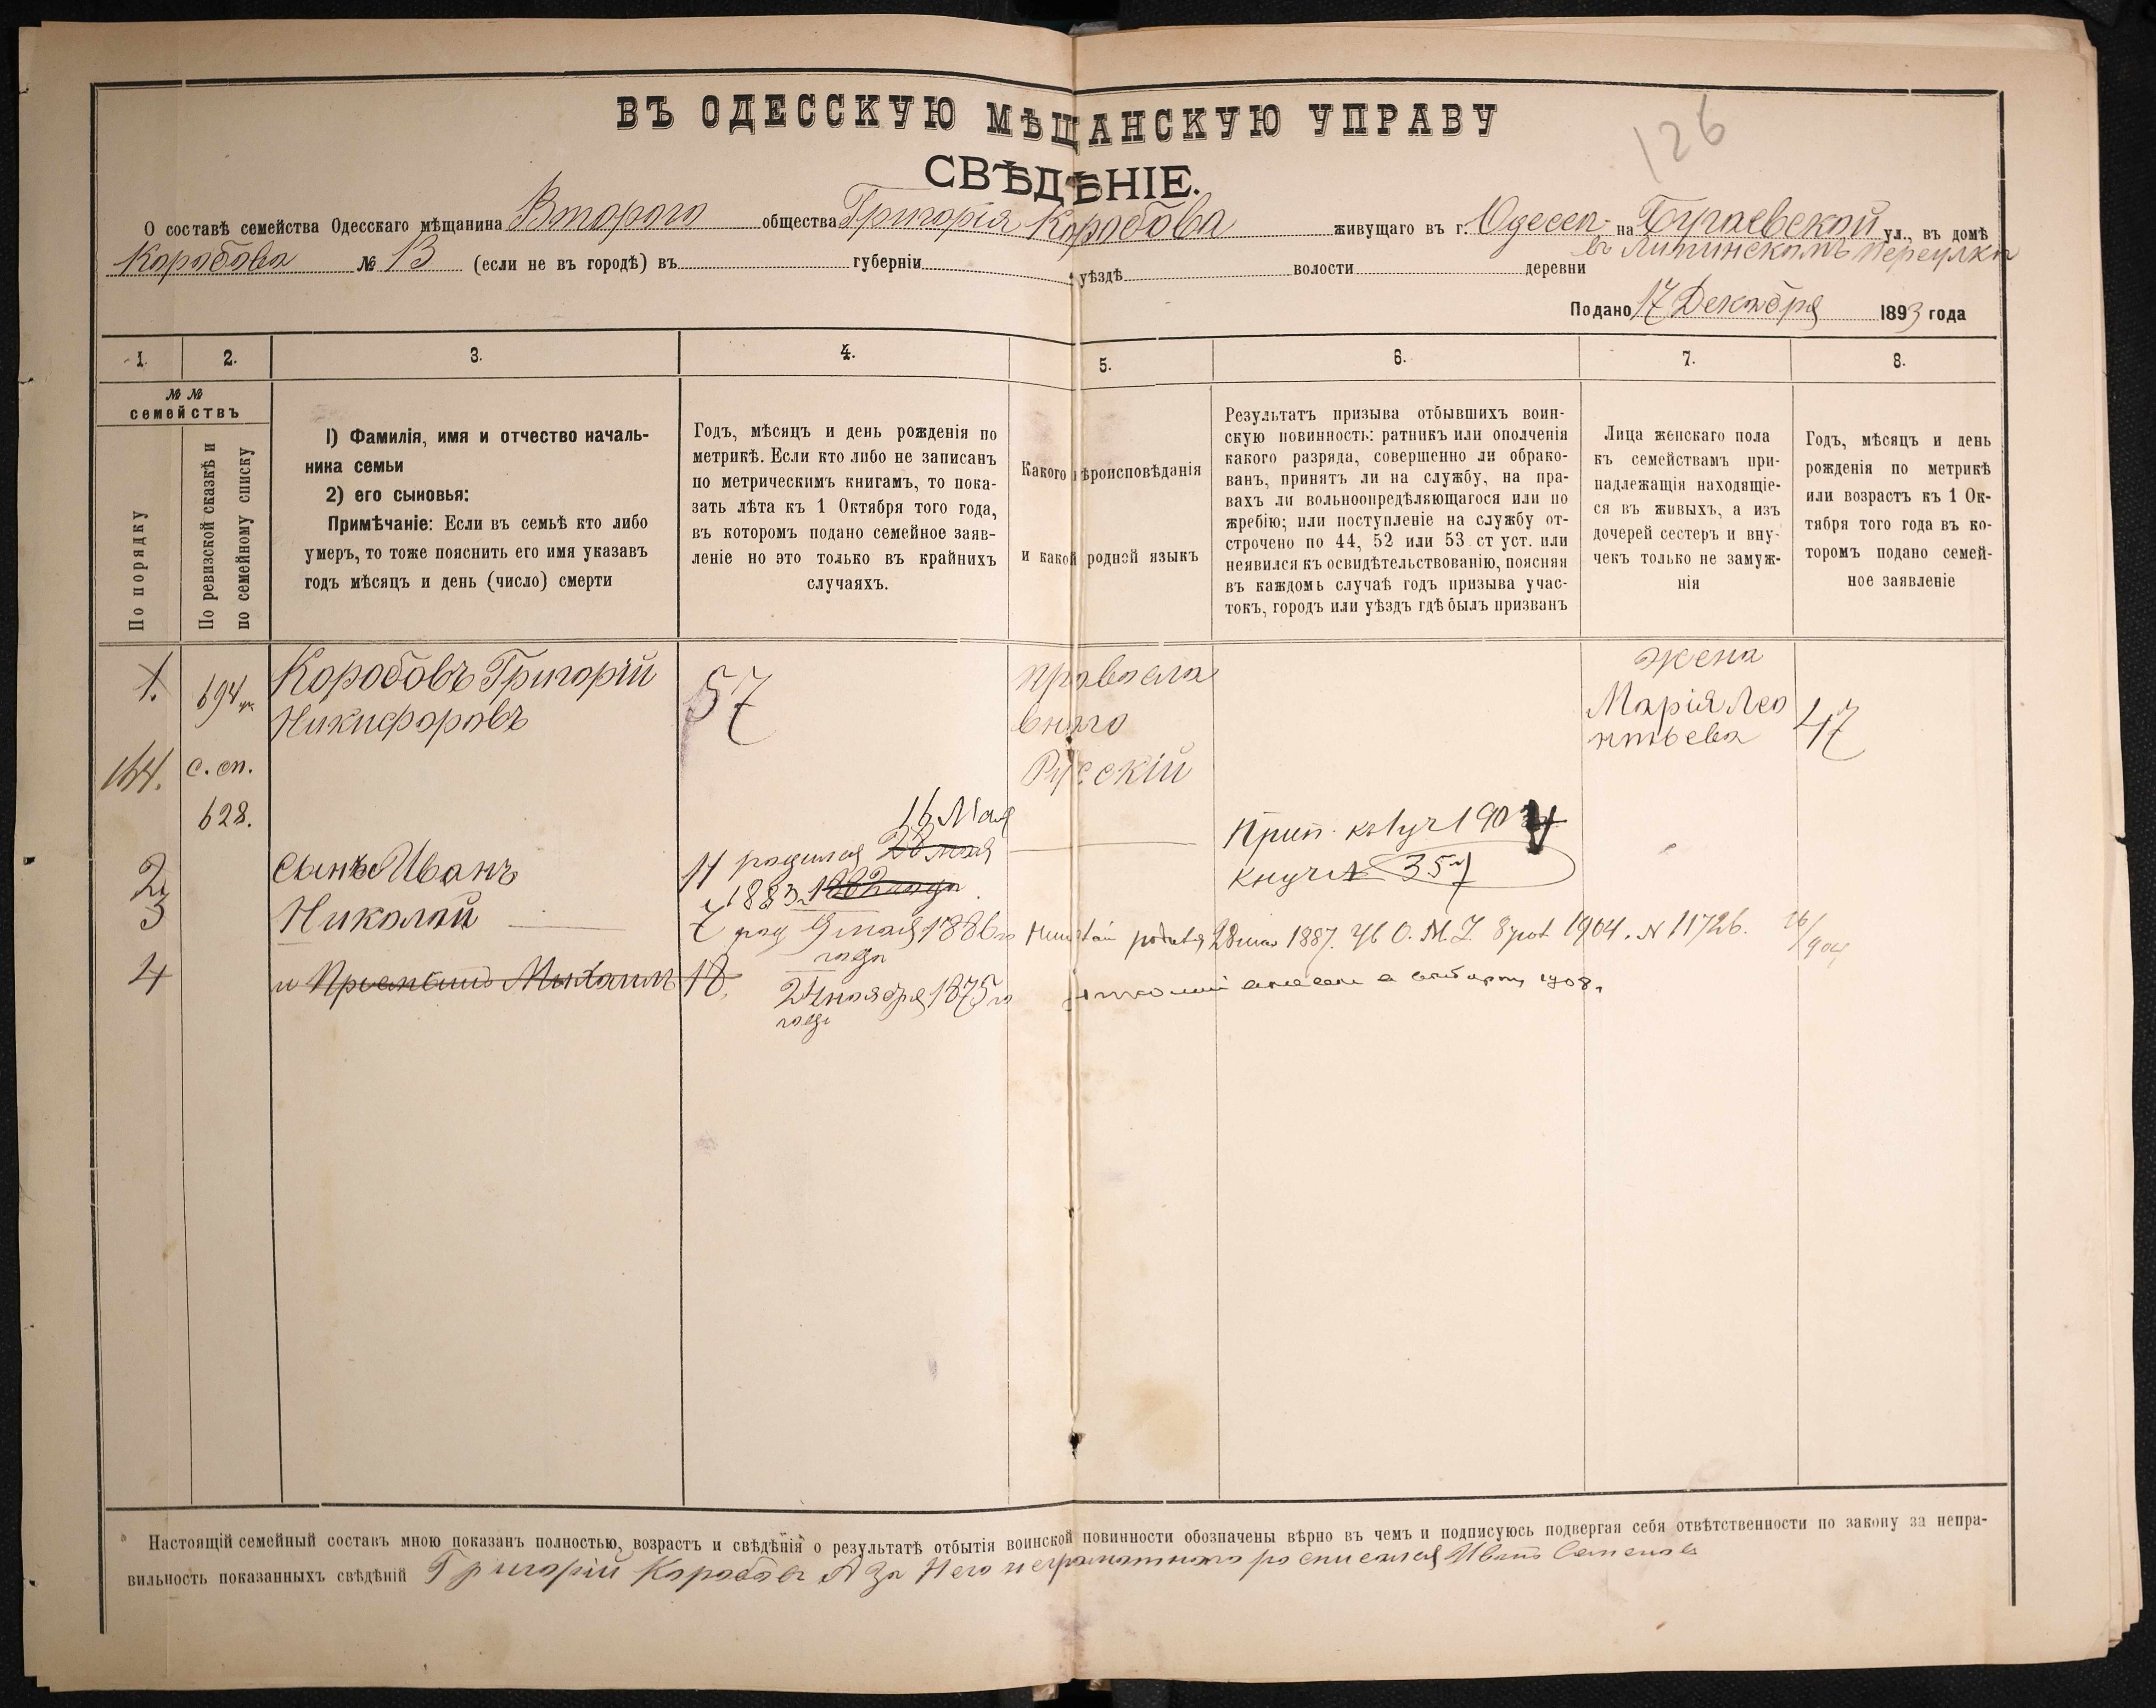 ВЪ ОДЕССКУЮ МѢЩАНСКУЮ УПРАВУ
126
СВѢДѢНІЕ.
О составѣ семейства Одесскаго мѣщанина Второго общества Григорія Коробова живущаго въ г. Одессѣ на Бугаевской ул., въ домѣ
въ переулкѣ
Коробова № 13 (если не въ городѣ) въ губерніи уѣздѣ волости деревни
Подано 17 Декабря 1893 года
1. 2. 3. 4. 5. 6. 7. 8.
№ №
семействъ
По порядку
По ревизской сказкѣ и
по семейному списку
I) Фамилія, имя и отчество началь-
ника семьи
2) его сыновья:
Примѣчаніе: Если въ семьѣ кто либо
умеръ, то тоже пояснить его имя указавъ
годъ мѣсяцъ и день (число) смерти
Годъ, мѣсяцъ и день рожденія по
метрикѣ. Если кто либо не записанъ
по метрическимъ книгамъ, то пока-
зать лѣта къ 1 Октября того года,
въ которомъ подано семейное заяв-
леніе но это только въ крайнихъ
случаяхъ.
Какого вѣроисповѣданія
и какой родной языкъ
Результатъ призыва отбывшихъ воин-
скую повинность: ратникъ или ополченія
какого разряда, совершенно ли обрако-
ванъ, принятъ ли на службу, на пра-
вахъ ли вольноопредѣляющагося или по
жребію; или поступленіе на службу от-
строчено по 44, 52 или 53 ст уст. или
неявился къ освидѣтельствованію, поясняя
въ каждомъ случаѣ годъ призыва учас-
токъ, городъ или уѣздъ гдѣ былъ призванъ
Лица женскаго пола
къ семействамъ при-
надлежащія находящіе-
ся въ живыхъ, а изъ
дочерей сестеръ и вну-
чекъ только не замуж-
нія
Годъ, мѣсяцъ и день
рожденія по метрикѣ
или возрастъ къ 1 Ок-
тября того года въ ко-
торомъ подано семей-
ное заявленіе
1. 694 Коробовъ Григорій 57 православ
Никифоровъ внаго
Русскій
жена
Марія Лео
нтьева 47
144. с. сп.
628.
16 Мая
2 Сынъ Иванъ 11 родился 28 мая
1883 1882 года
Прип. 190
357
3 Николай 7 род 9 мая 1886 го
года
1887. О. М. 1904. № 11726.
4 и Михаилъ 18. 24 ноября 1875 го
года
1908.
Настоящій семейный составъ мною показанъ полностью, возрастъ и свѣдѣнія о результатѣ отбытія воинской повинности обозначены вѣрно въ чемъ и подписуюсь подвергая себя отвѣтственности по закону за непра-
вильность показанныхъ свѣдѣній Григорій Коробовъ А за Него неграмотного росписался Иванъ